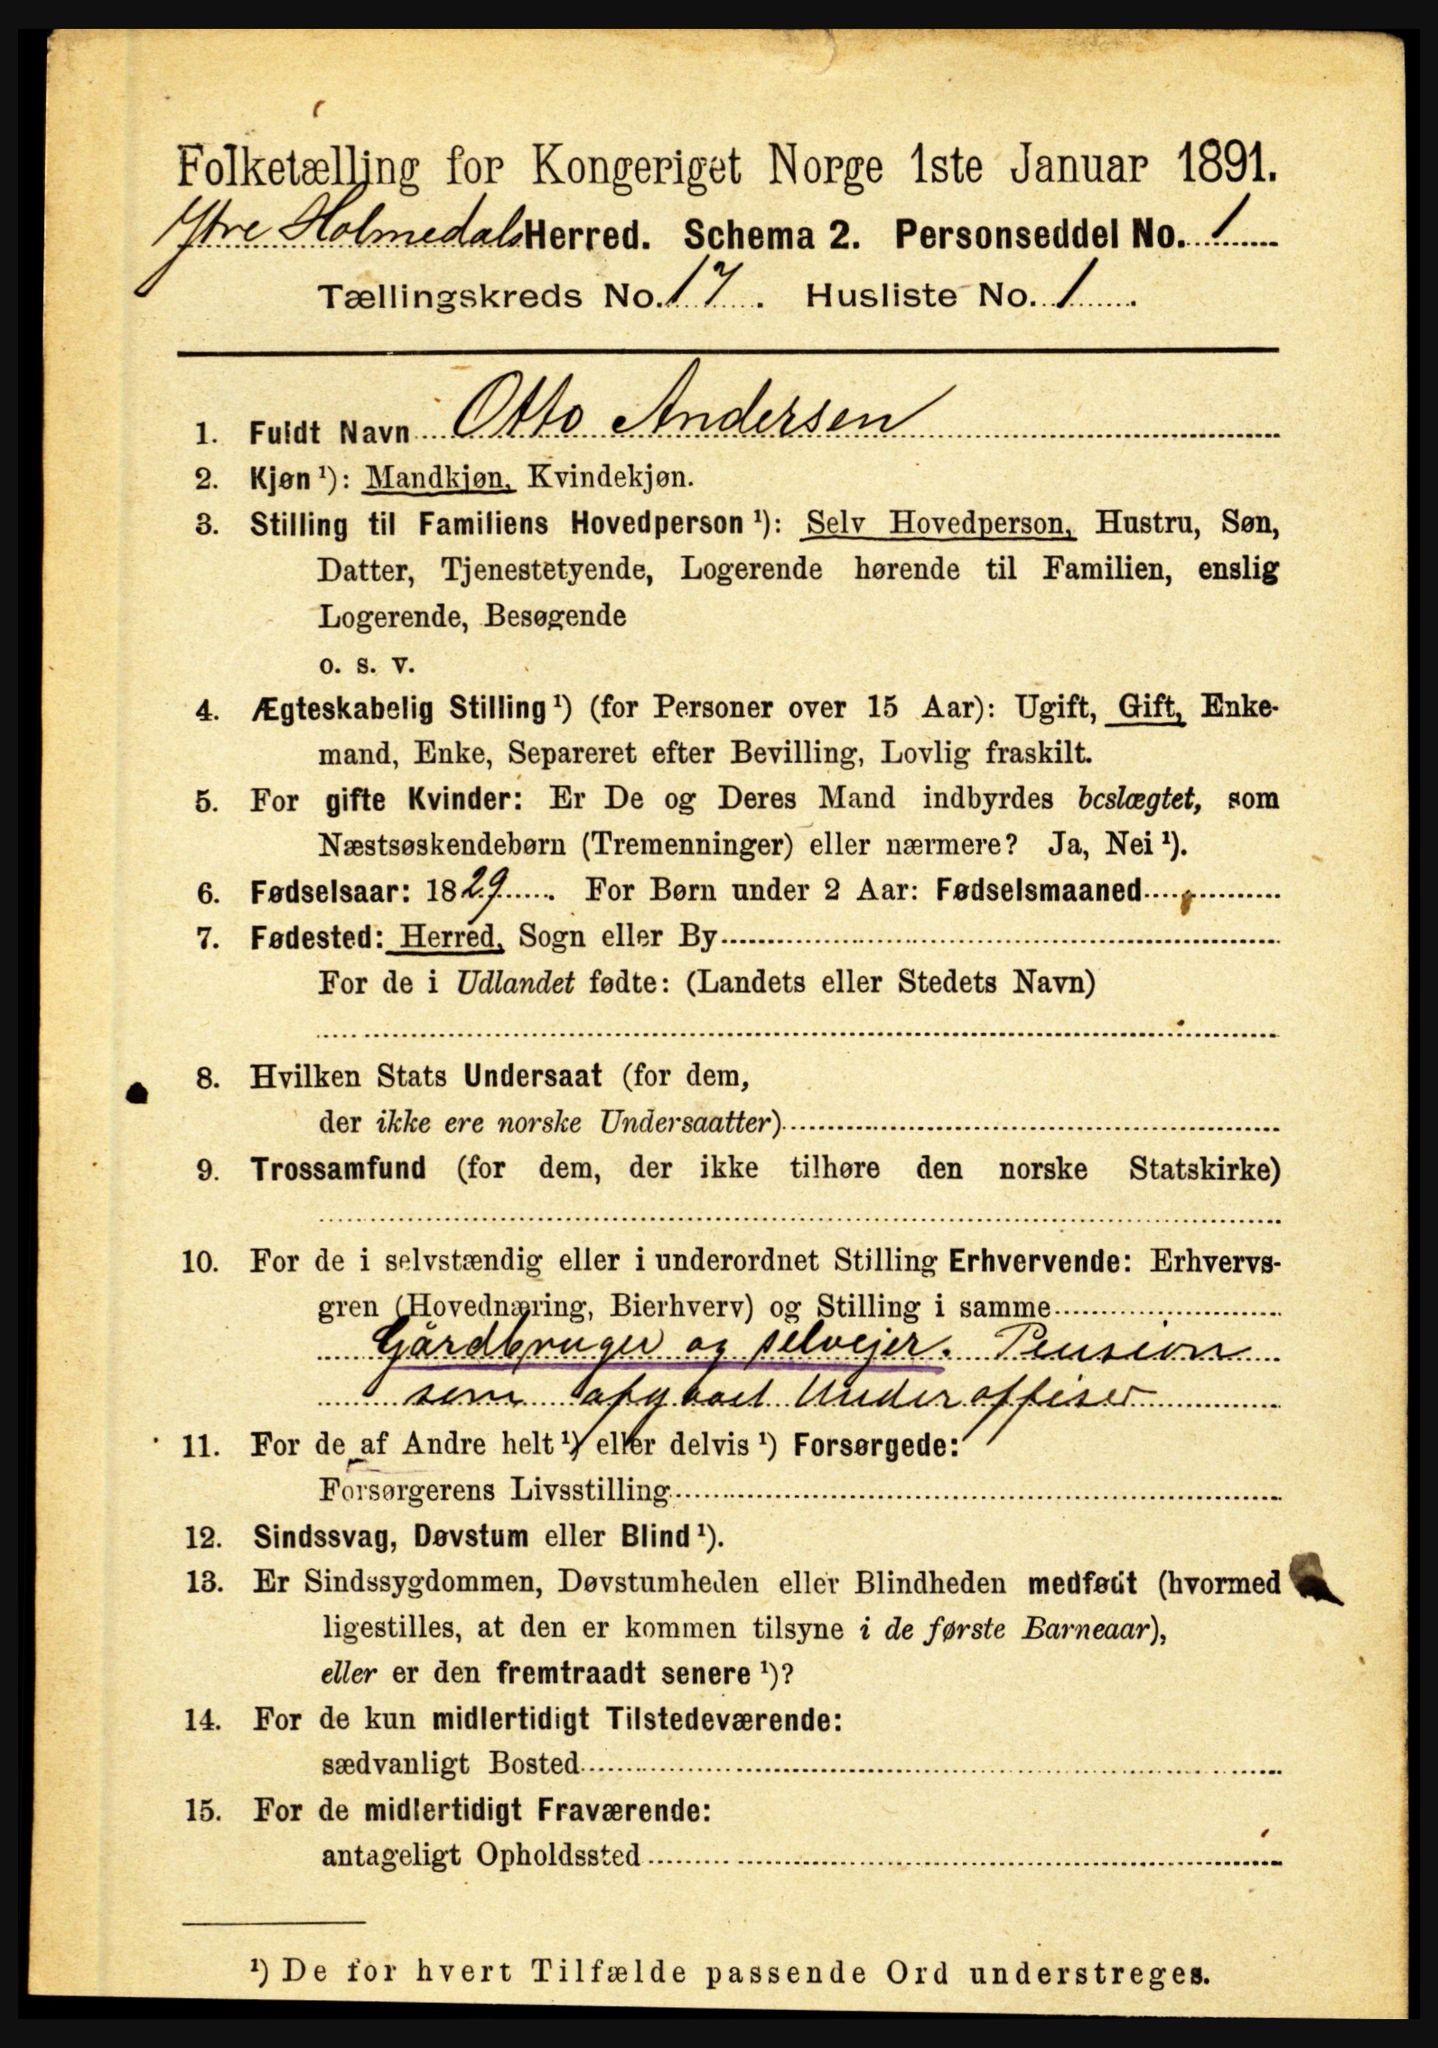 Folketælling for Kongeriget Norge 1ste Januar 1891.
Ytre Holmedals Herred. Schema 2. Personseddel No. 1
Tællingskreds No. 17. Husliste No. 1.
1. Fuldt Navn Otto Andersen
2. Kjøn ¹): Mandkjøn, Kvindekjøn.
3. Stilling til Familiens Hovedperson ¹): Selv Hovedperson, Hustru, Søn,
Datter, Tjenestetyende, Logerende hørende til Familien, enslig
Logerende, Besøgende
o. s. v.
4. Ægteskabelig Stilling ¹) (for Personer over 15 Aar): Ugift, Gift, Enke-
mand, Enke, Separeret efter Bevilling, Lovlig fraskilt.
5. For gifte Kvinder: Er De og Deres Mand indbyrdes beslægtet, som
Næstsøskendebørn (Tremenninger) eller nærmere? Ja, Nei ¹).
6. Fødselsaar: 1829. For Børn under 2 Aar: Fødselsmaaned
7. Fødested: Herred, Sogn eller By
For de i Udlandet fødte: (Landets eller Stedets Navn)
8. Hvilken Stats Undersaat (for dem,
der ikke ere norske Undersaatter)
9. Trossamfund (for dem, der ikke tilhøre den norske Statskirke)
10. For de i selvstændig eller i underordnet Stilling Erhvervende: Erhvervs-
gren (Hovednæring, Bierhverv) og Stilling i samme
Gårdbruger og selvejer. Pension
som afgaaet Underoffiser
11. For de af Andre helt ¹) eller delvis ¹) Forsørgede:
Forsørgerens Livsstilling
12. Sindssvag, Døvstum eller Blind ¹).
13. Er Sindssygdommen, Døvstumheden eller Blindheden medfødt (hvormed
ligestilles, at den er kommen tilsyne i de første Barneaar),
eller er den fremtraadt senere ¹)?
14. For de kun midlertidigt Tilstedeværende:
sædvanligt Bosted
15. For de midlertidigt Fraværende:
antageligt Opholdssted
¹) De for hvert Tilfælde passende Ord understreges.